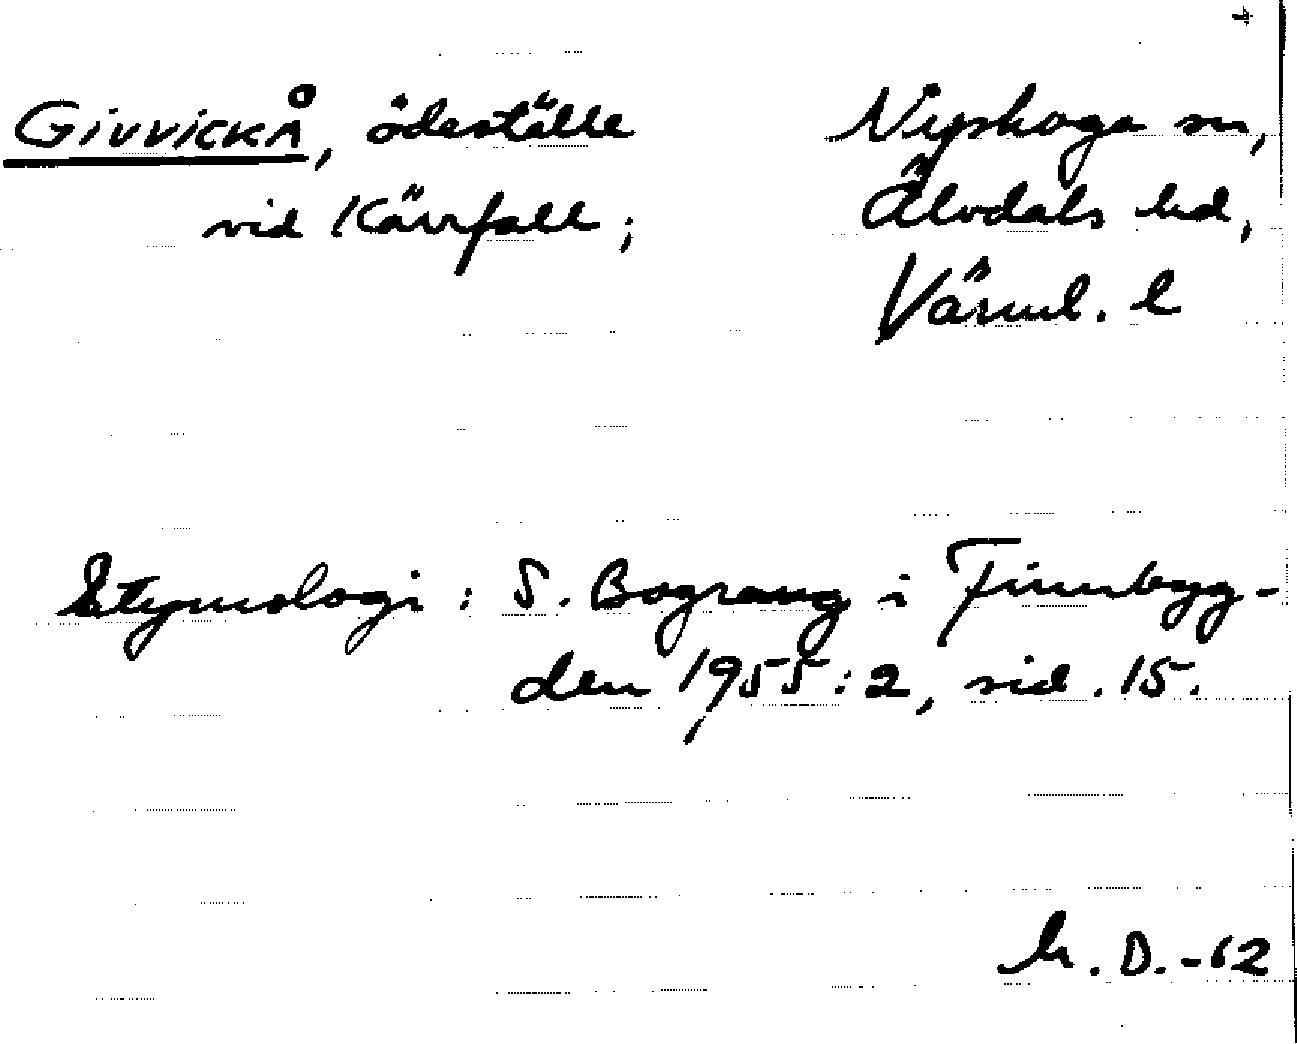 GIVVICKÅ, ödeställe
vid Kärrfall;
Nyskoga sn,
Älvdals hd,
Värml. l
Etymologi: S. Bograng i Finnbygg-
den 1955:2, sid. 15.
h. D. -62